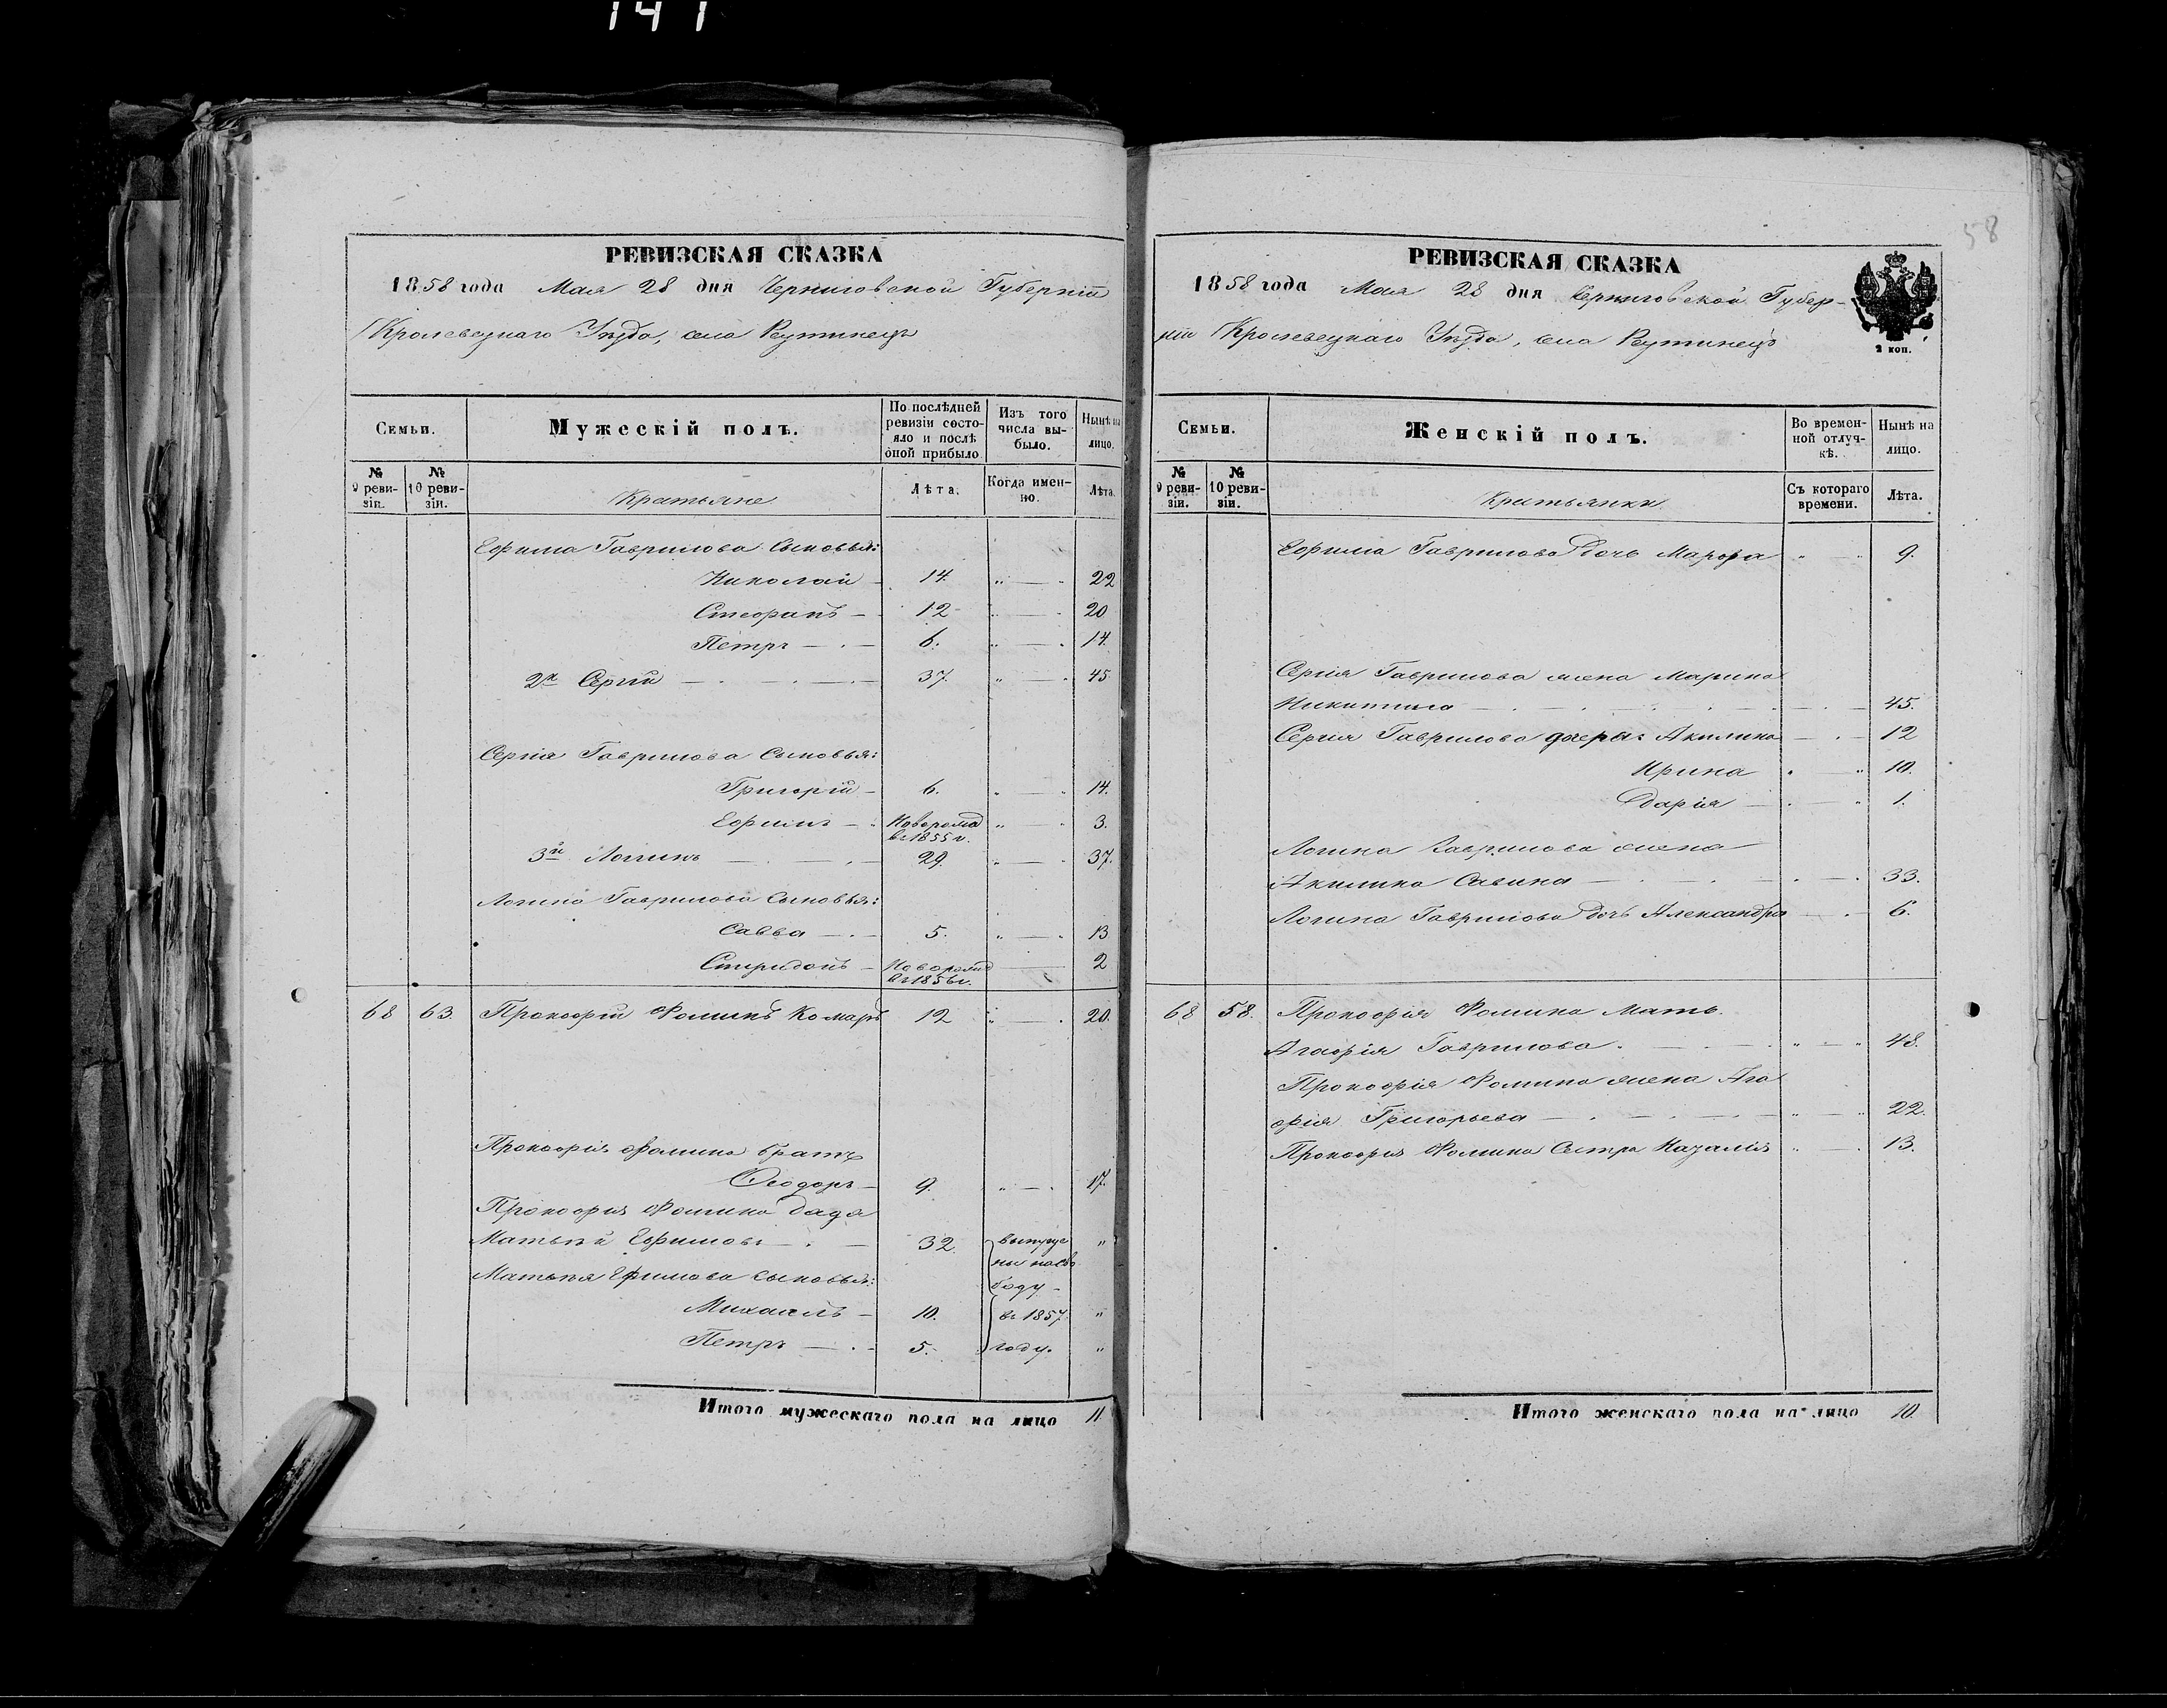 141
РЕВИЗСКАЯ СКАЗКА
1858 года Мая 28 дня Черниговской Губерніи
Кролевецкаго Уѣзда, села Реутинецъ
Семьи.
Мужескій полъ.
По послѣдней ревизіи состояло и послѣ оной прибыло
Изъ того числа выбыло.
Нынѣ на лицо.
№ 9 ревизіи.
№ 10 ревизіи.
Крестьяне
Лѣта.
Когда именно.
Лѣта.
Ефима Гаврилова Сыновья:
Николай — 14. „ — „ 22
Стефанъ — 12 „ — „ 20
Петръ — 6. „ — „ 14.
2й Сергій — 37. „ — „ 45
Сергія Гаврилова Сыновья:
Григорій — 6. „ — „ 14.
Ефимъ — Новорожд „ — „ 3.
въ 1855 г.
3й Логинъ — 29. „ — „ 37.
Логина Гаврилова Сыновья:
Савва — 5. „ — „ 13
Спиридонъ — Новорожд — 2
въ 1856 г.
68 63. Прокофій Фоминъ Комаръ 12 „ — „ 20.
Прокофія Фомина братъ
Феодоръ — 9. „ — „ 17.
Прокофія Фомина дядя
Матвѣй Ефимовъ — 32. выпуще „
ны на сво
Матвѣя Ефимова Сыновья:
боду —
Михаилъ — 10. въ 1857 „
Петръ — 5. году. „
Итого мужескаго пола на лицо 11.
58
РЕВИЗСКАЯ СКАЗКА
1858 года Мая 28 дня Черниговской Губер-
ніи Кролевецкаго Уѣзда, села Реутинецъ
2 коп.
Семьи.
Женскій полъ.
Во временной отлучкѣ.
Нынѣ на лицо.
№ 9 ревизіи.
№ 10 ревизіи.
Крестьянки
Съ котораго времени.
Лѣта.
Ефима Гаврилова дочь Марфа „ — „ 9.
Сергія Гаврилова жена Марина
Никитина — 45.
Сергія Гаврилова дочери: Акилина — 12
Ирина „ — „ 10.
Дарія — „ — „ 1.
Логина Гаврилова жена
Акилина Савина — 33.
Логина Гаврилова дочь Александра — 6.
68 58. Прокофія Фомина Мать
Агафія Гаврилова. — „ — „ 48.
Прокофія Фомина жена Ага
фія Григорьева — „ — „ 22.
Прокофія Фомина Сестра Наталія „ — „ 13.
Итого женскаго пола на лицо 10.